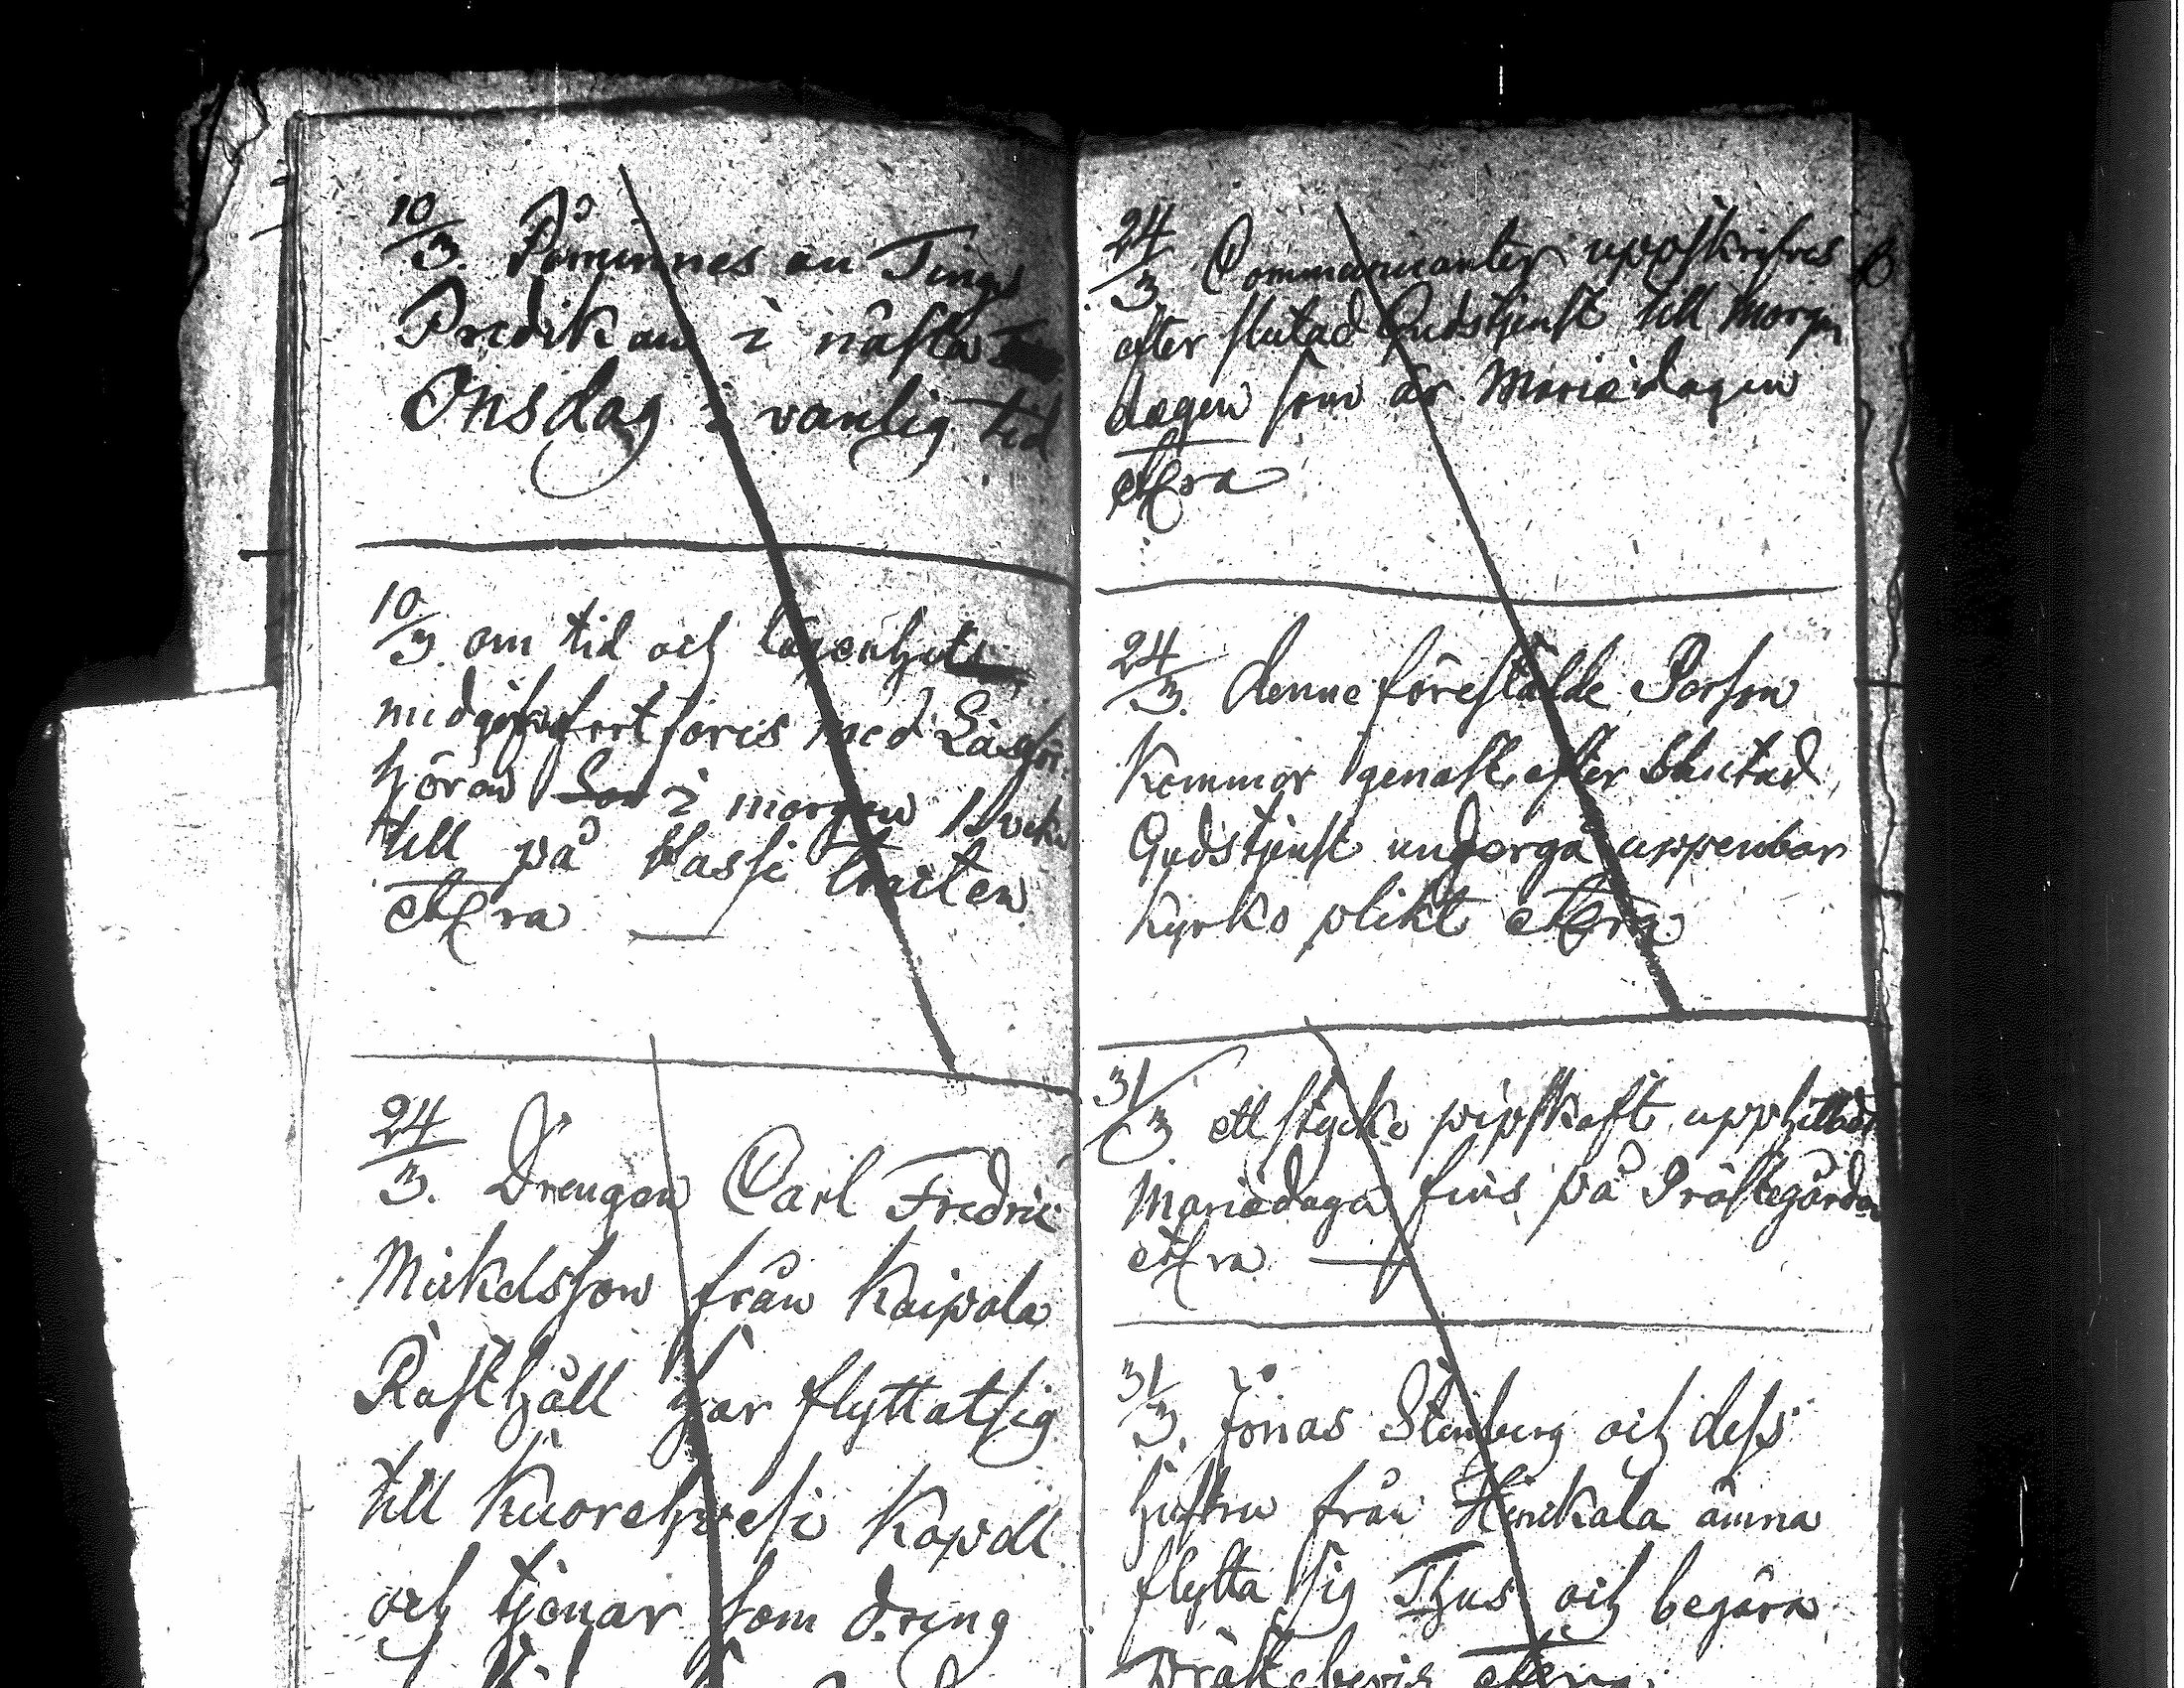 10/3. Påminnes en Tings
Predikan i nästa
Onsdag i vanlig tid
10/3. om tid och lägenhet
medgifvefortfaris med Läsför
hören i morgon 1 veka
till på Hassi
etc ra
24/3. Drengen Carl Fredric
Mickelsson från Kaipola
Rusthåll har flyttat sig
till Kuorehvesi Kapell
och tjenar som dreng
24/3. Communicanter uppskrifves
efter slutad Gudstjenst till morgon
dagen som är Mariædagen
etc ra
24/3. denne förestälde Person
kommer genast efter Slutad
Gudstjenst undergå uppenbar
kyrko plikt etc ra
31/3 ett stycke pipskaft upphittadt
Mariædagen fins på Prästegården
etc ra
31/3. Jonas Stenberg och dess
hustru från Hinkala ämna
flytta sig Thus och begära
Prästebevis etc ra